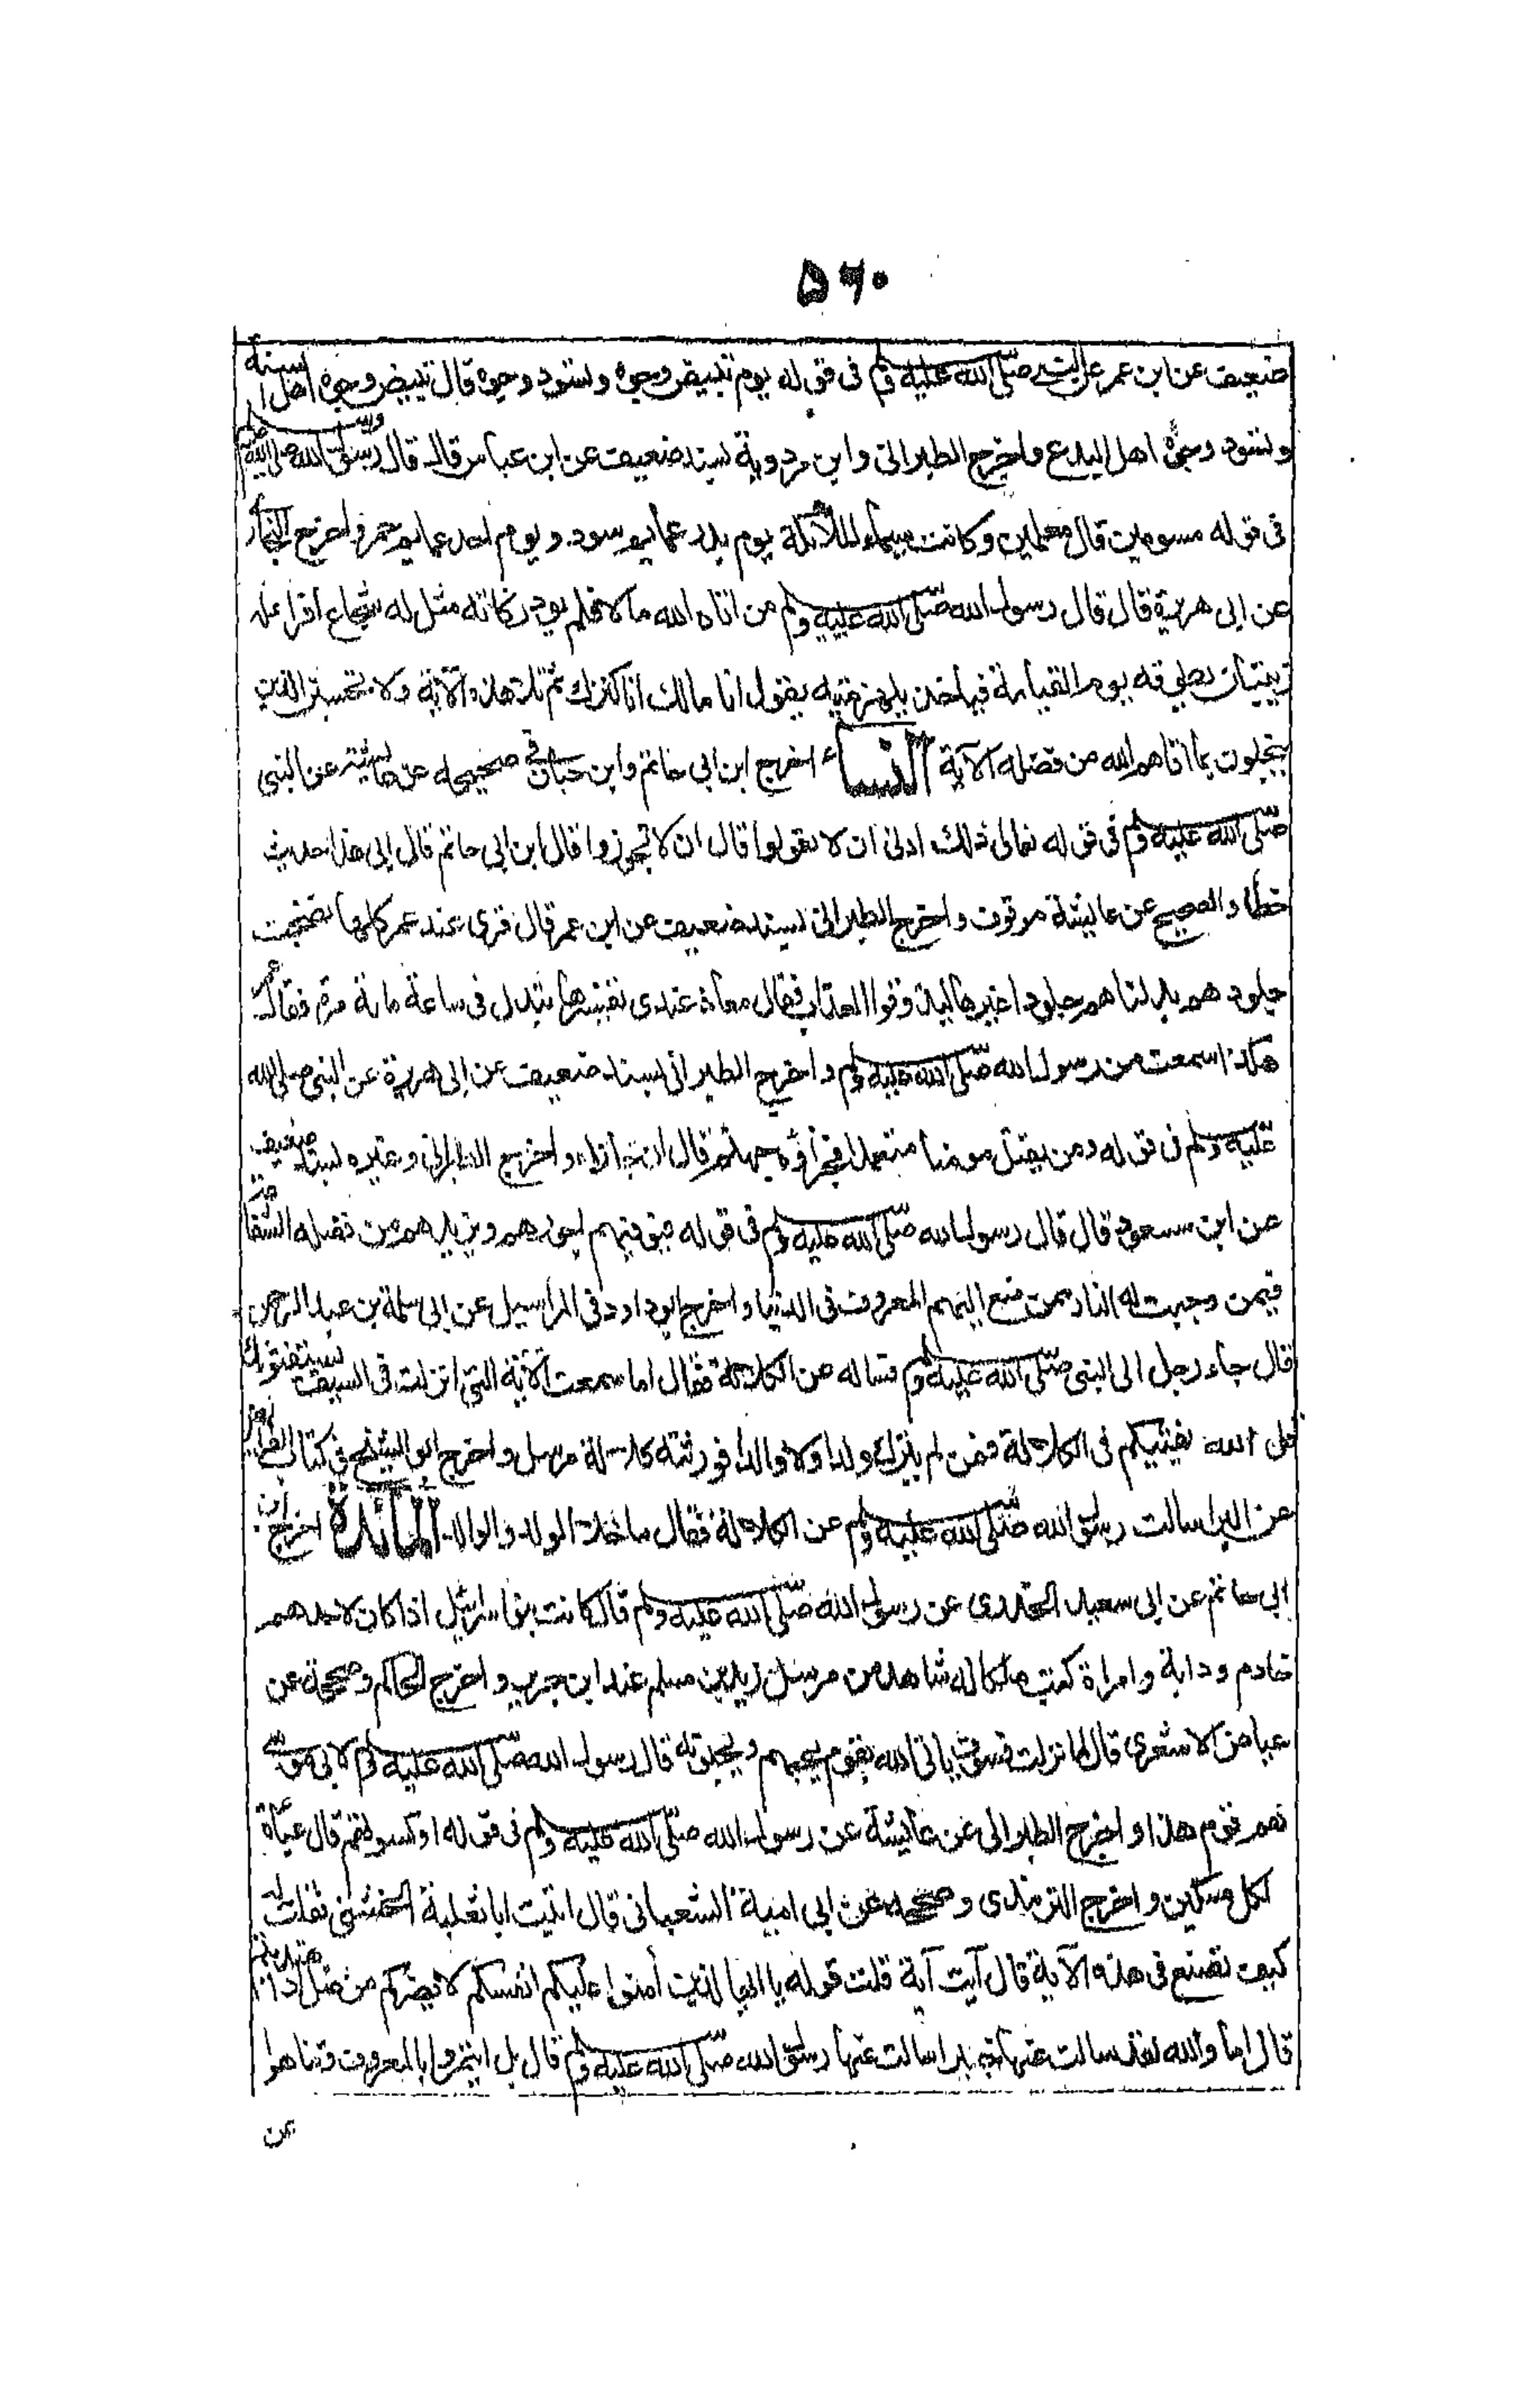 ۵۶۰
ضعيف عن ابن عمر عن النبي صلى الله عليه وسلم فى قوله يوم تبيض وجوه وتسود وجوه قال تبيض وجوه اهل السنة
وتسود وجوه اهل البدع واخرج الطبرانى وابن مردوية بسند ضعيف عن ابن عباس قال قال رسول الله صلى الله عليه وسلم
فى قوله مسومين قال معلمين وكانت سيماء الملائكة يوم بدر عمايم سود ويوم احد عمايم حمر واخرج البخارى
عن ابى هريرة قال قال رسول الله صلى الله عليه وسلم من اتاه الله مالا فلم يود زكاته مثل له شجاع اقرع له
زبيبتان يطوقه يوم القيامة فياخذ بلهزمتيه يقول انا مالك انا كنزك ثم تلا هذه الآية ولا يحسبن الذين
يبخلون بما اتاهم الله من فضله الآية النساء اخرج ابن ابى حاتم وابن حبان فى صحيحه عن عائشة عن النبى
صلى الله عليه وسلم فى قوله تعالى ذلك ادنى ان لا تعولوا قال ان لا تجوروا قال ابن ابى حاتم قال ابى هذا حديث
خطأ والصحيح عن عايشة موقوف واخرج الطبرانى بسند ضعيف عن ابن عمر قال قرى عند عمر كلما نضجت
جلودهم بدلناهم جلودا غيرها ليذوقوا العذاب فقال معاذ عندى تفسيرها تبدل فى ساعة ماية مرة فقال عمر
هكذا سمعت من رسول الله صلى الله عليه وسلم واخرج الطبرانى بسند ضعيف عن ابى هريرة عن النبى صلى الله
عليه وسلم فى قوله ومن يقتل مومنا متعمدا فجزاؤه جهنم قال ان جازاه واخرج الطبرانى وغيره بسند ضعيف
عن ابن مسعود قال قال رسول الله صلى الله عليه وسلم فى قوله فيوفيهم اجورهم ويزيدهم من فضله الشفاعة
فيمن وجبت له النار ممن صنع اليهم المعروف فى الدنيا واخرج ابو داود فى المراسيل عن ابى سلمة بن عبد الرحمن
قال جاء رجل الى النبى صلى الله عليه وسلم فساله عن الكلالة فقال اما سمعت الآية التى انزلت فى الصيف يستفتونك
قل الله يفتيكم فى الكلالة فمن لم يترك ولدا ولا والدا فورثته كلالة مرسل واخرج ابو الشيخ فى كتاب الفرائض
عن البرا سالت رسول الله صلى الله عليه وسلم عن الكلالة فقال ما خلا الولد والوالد المائدة اخرج ابن
ابى حاتم عن ابى سعيد الخدرى عن رسول الله صلى الله عليه وسلم قال كانت بنو اسرائيل اذا كان لاحدهم
خادم ودابة وامراة كتب ملكا له شاهد من مرسل زيد بن مسلم عند ابن جرير واخرج الحاكم وصححه عن
عياض الاشعرى قال لما نزلت فسوف ياتى الله بقوم يحبهم ويحبونه قال رسول الله صلى الله عليه وسلم لابى موسى
هم قوم هذا واخرج الطبرانى عن عائيشة عن رسول الله صلى الله عليه وسلم فى قوله او كسوتهم قال عباءة
لكل مسكين واخرج الترمذى وصححه عن ابى امية الشعبانى قال اتيت ابا ثعلبة الخشنى فقلت له
كيف تصنع فى هذه الآية قال آيت آية قلت قوله يا ايها الذين آمنوا عليكم انفسكم لا يضركم من ضل اذا اهتديتم
قال اما والله لقد سالت عنها خبيرا سالت عنها رسول الله صلى الله عليه وسلم قال بل ايتمروا بالمعروف وتناهوا
عن